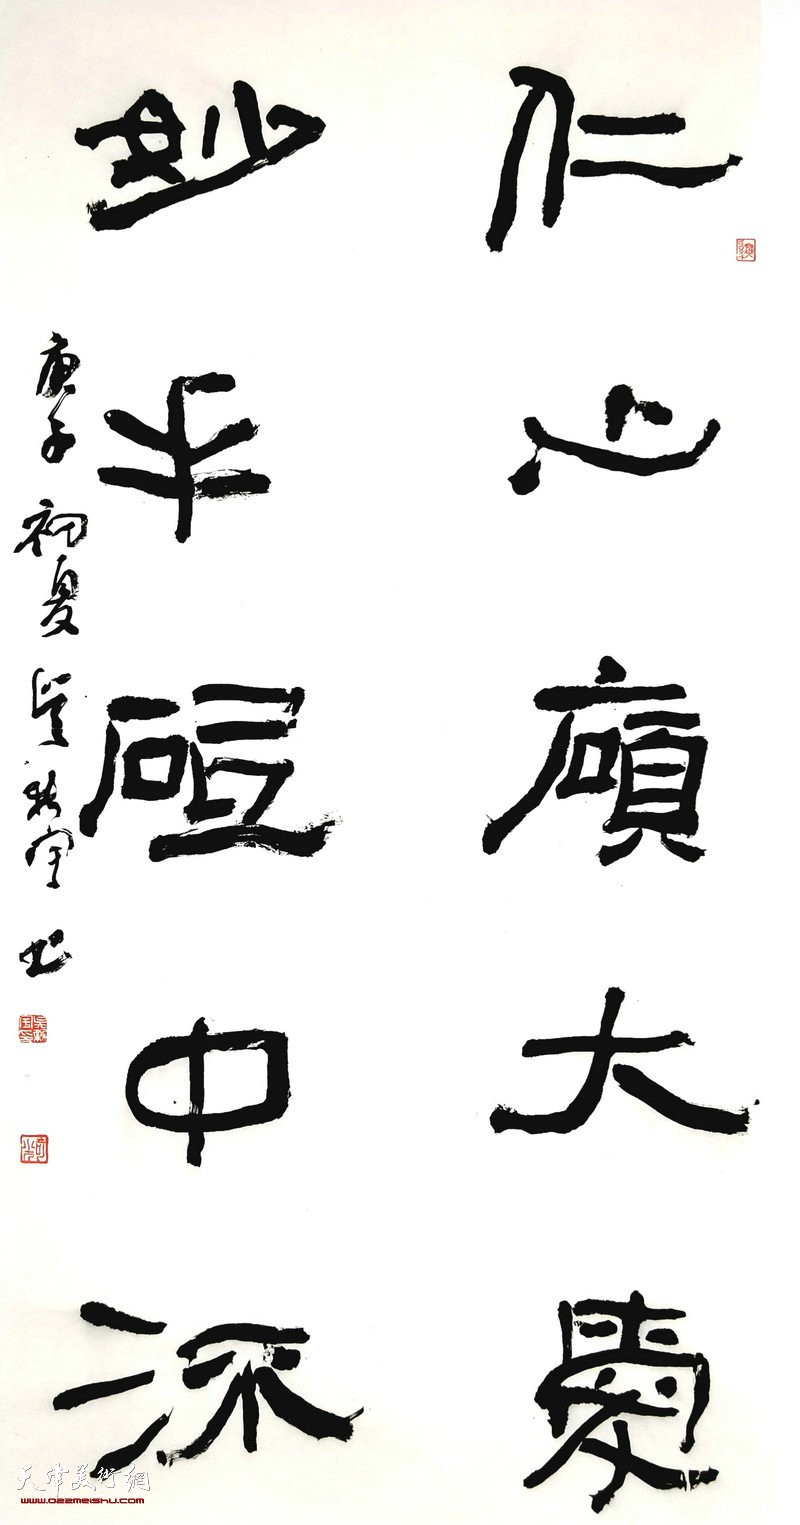 仁心願大愛
妙手砥中流
庚子初夏
书
天津美術網
www.022meishu.com